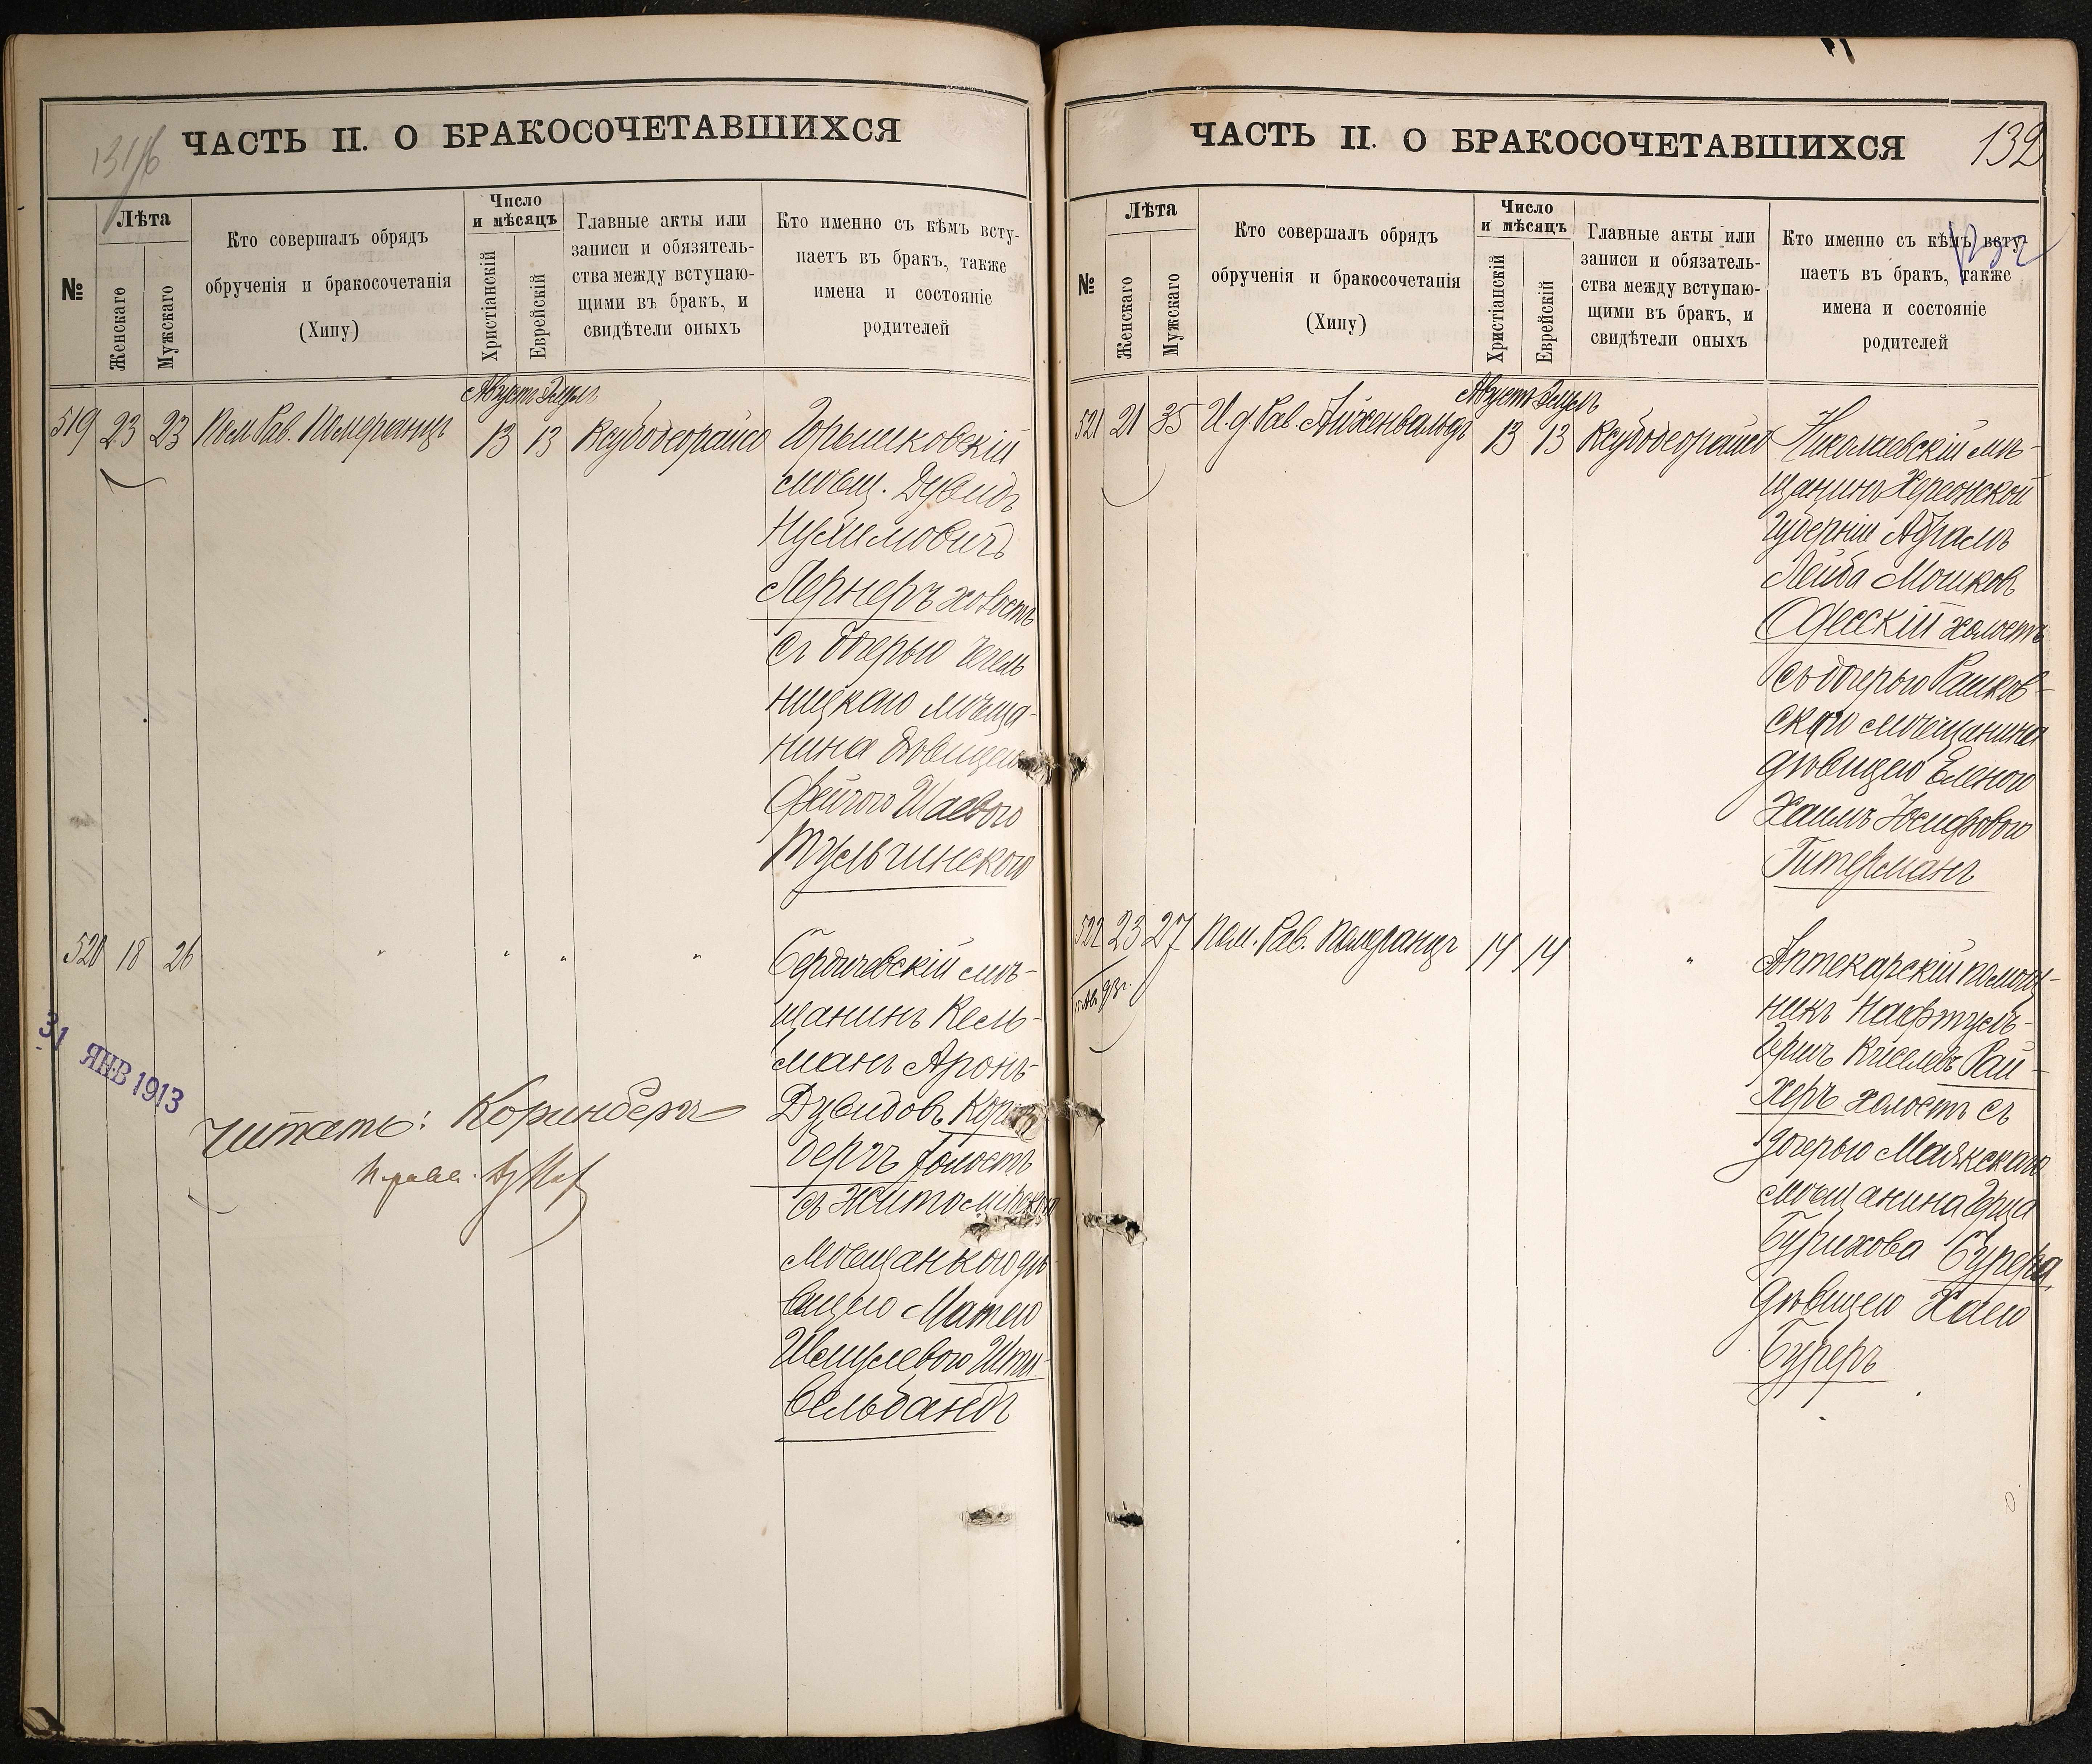 131/б
ЧАСТЬ II. О БРАКОСОЧЕТАВШИХСЯ
№
Лѣта
Женскаго
Мужскаго
Кто совершалъ обрядъ
обрученія и бракосочетанія
(Хипу)
Число
и мѣсяцъ
Христіанскій
Еврейскій
Главные акты или
записи и обязатель-
ства между вступаю-
щими въ бракъ, и
свидѣтели оныхъ
Кто именно съ кѣмъ всту-
паетъ въ бракъ, также
имена и состояніе
родителей
Августъ Элулъ
519 23 23 Пом. Рав. Померанцъ 13 13 Ксубодеорайсо
Горышковскій
мѣщ. Дувидъ
Нухимовичъ
Лернеръ холостъ
съ дочерью Чечель
ницкаго мѣща-
нина дѣвицею
Фейгою Шаевою
Тульчинскою
520 18 26 " " " "
Бердичевскій мѣ-
щанинъ Кель-
манъ Аронъ-
Дувидовъ Корин
бергъ холостъ
съ Житомірскою
мѣщанкою дѣ-
вицею Матею
Шмулевою Шти-
вельбандъ
31 ЯНВ 1913
Читать: Коринбергъ
ЧАСТЬ II. О БРАКОСОЧЕТАВШИХСЯ
132
№
Лѣта
Женскаго
Мужскаго
Кто совершалъ обрядъ
обрученія и бракосочетанія
(Хипу)
Число
и мѣсяцъ
Христіанскій
Еврейскій
Главные акты или
записи и обязатель-
ства между вступаю-
щими въ бракъ, и
свидѣтели оныхъ
Кто именно съ кѣмъ всту-
паетъ въ бракъ, также
имена и состояніе
родителей
Августъ Элулъ
521 21 35 И. д. Рав. Айхенвальдъ 13 13 Ксубодеорайсо
Николаевскій мѣ-
щанинъ Херсонской
Губерніи Абрамъ
Лейба Мошков
Одесскій холостъ
съ дочерью Рашков-
скаго мѣщанина
дѣвицею Еленою
Хаимъ Іосифовою
Гитерманъ
522 23 27 Пом. Рав. Померанцъ 14 14 "
Аптекарскій помощ-
никъ Нафтулъ-
Герш Киселевъ Рай-
херъ холостъ съ
дочерью Маякскаго
мѣщанина Герша
Бурихова Бурера
дѣвицею Хаею
Буреръ